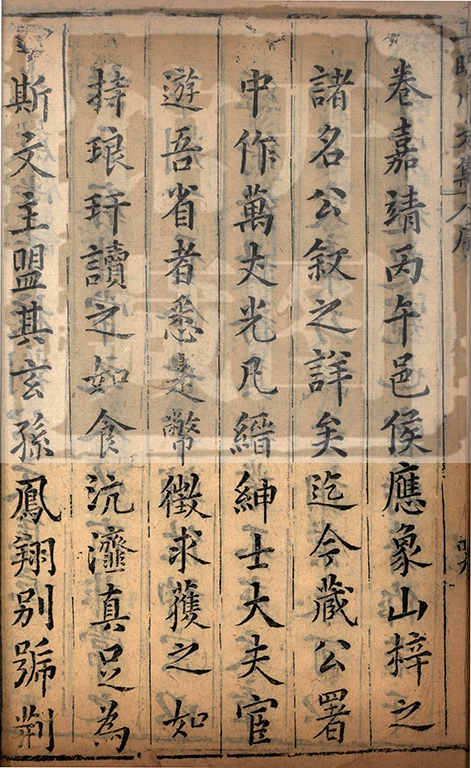 卷嘉靖丙午邑侯應象山梓之
諸名公敘之詳矣迄今藏公署
中作萬丈光凡縉紳士大夫宦
遊吾省者悉走幣徵求獲之如
持琅玕讀之如食沆瀣真足為
斯文主盟其玄孫鳳翔別號荆